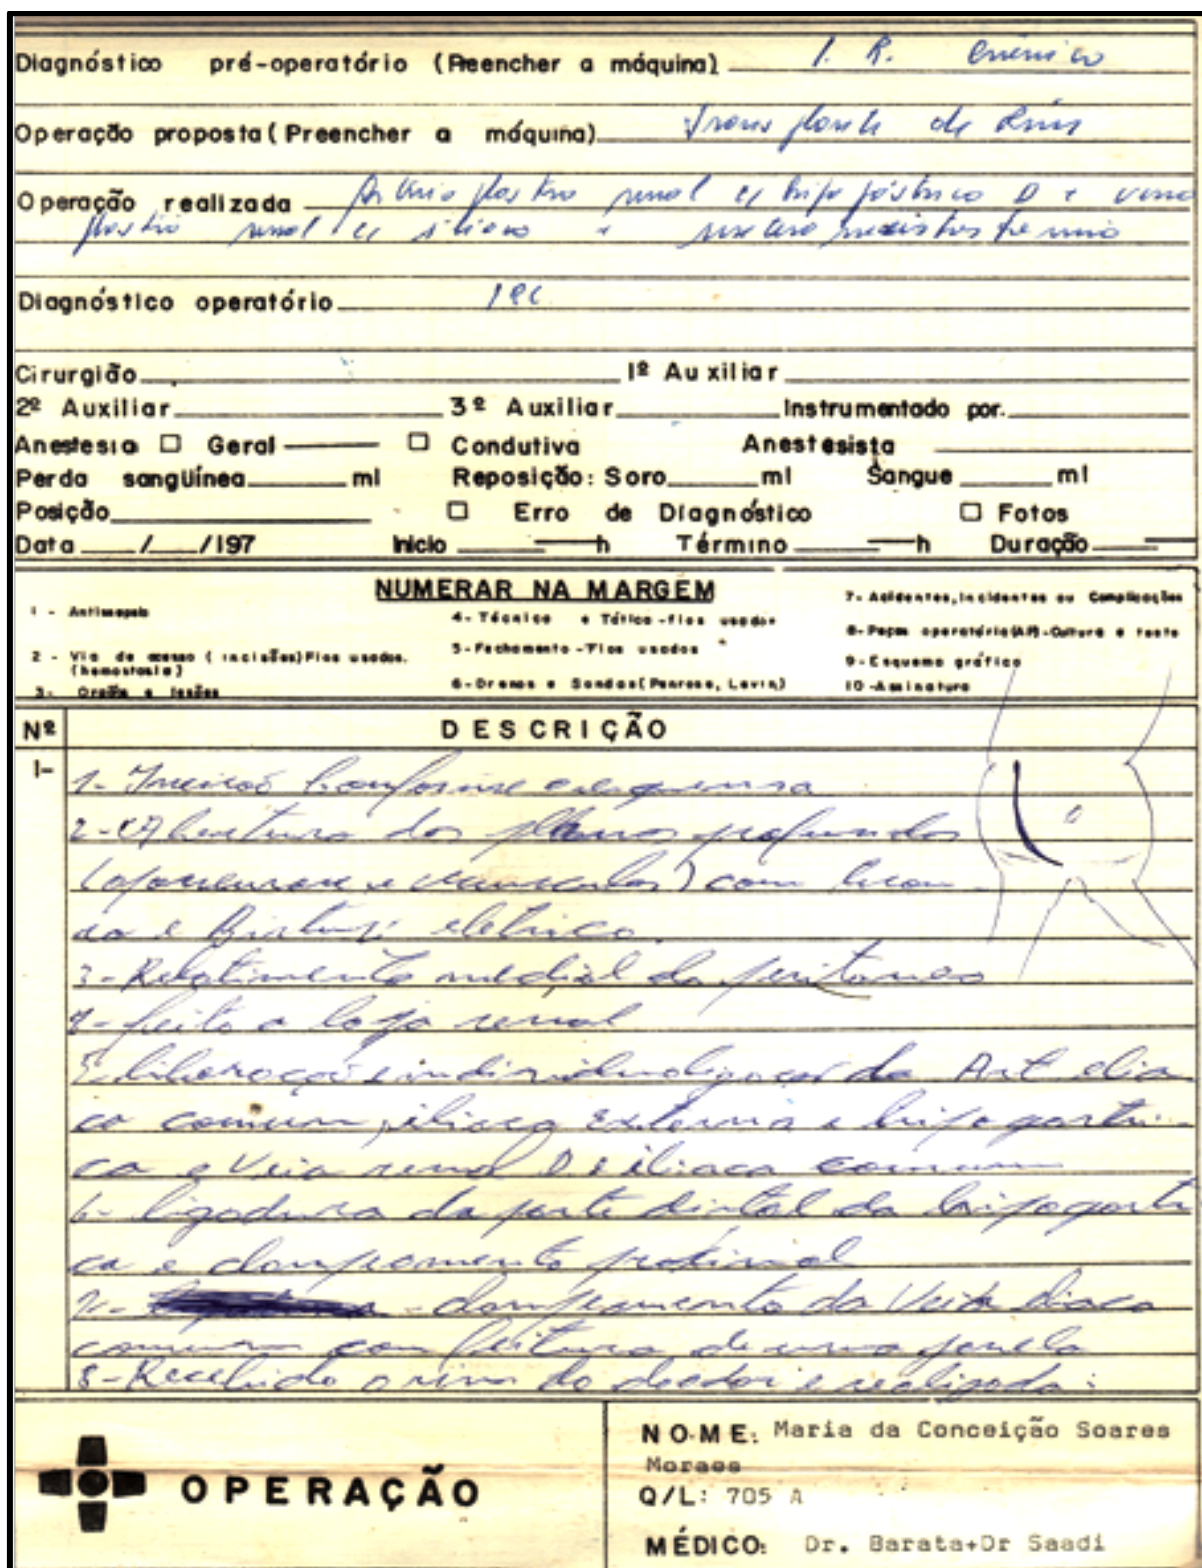 Diagnóstico pré-operatório (Preencher a máquina) I. R. Crônica
Operação proposta (Preencher a máquina) Transplante de Rim
Operação realizada renal c/ hipogástrica D e veno
plastia renal c/ ilíaca e
Diagnóstico operatório IRC
Cirurgião 1º Auxiliar
2º Auxiliar 3º Auxiliar Instrumentado por.
Anestesia □ Geral □ Condutiva Anestesista
Perda sangüínea ml Reposição: Soro ml Sangue ml
Posição □ Erro de Diagnóstico □ Fotos
Data / /197 Início h Término h Duração
NUMERAR NA MARGEM
1 - Antissepsia 4-Técnica e Tática-fios usados 7-Acidentes, Incidentes ou Complicações
2 - Via de acesso (incisões) Fios usados. (hemostasia) 5-Fechamento-Fios usados 8-Peças operatória(AP)-Cultura e teste
3- Orgãos e lesões 6-Drenos e Sondas(Penrose, Levin) 9-Esquema gráfico
10-Assinatura
Nº DESCRIÇÃO
1- 1- Incisão conforme esquema
2- Abertura dos planos profundos
(aponeurose e músculos) com
e Bisturi elétrico.
3- Rebatimento medial do peritoneo
4- feito a loja renal
5- liberação e individualização da Art ilia
ca comum, iliaca externa e hipogastri-
ca e Veia renal D e iliaca comum
6- ligadura da parte distal da hipogastri
ca e clampeamento proximal
7- clampeamento da Veia iliaca
comum com feitura de uma janela
8- Recebido o rim do doador e realizada:
OPERAÇÃO
NOME: Maria da Conceição Soares
Moraes
Q/L: 705 A
MÉDICO: Dr. Barata+Dr Saadi